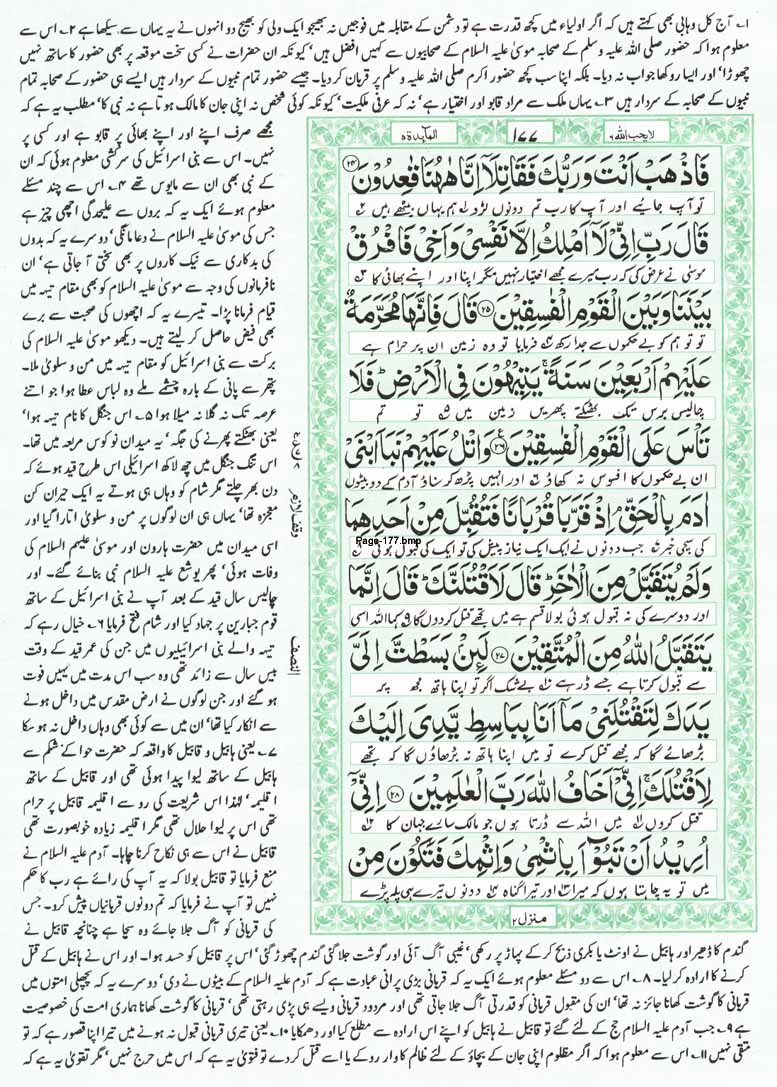 ۱۔ آج کل وہابی بھی کہتے ہیں کہ اگر اولیاء میں کچھ قدرت ہے تو دشمن کے مقابلہ میں فوجیں نہ بھیجو ایک ولی کو بھیج دو انہوں نے یہ یہاں سے سیکھا ہے ۲۔ اس سے
معلوم ہوا کہ حضور صلی اللہ علیہ وسلم کے صحابہ موسیٰ علیہ السلام کے صحابیوں سے کہیں افضل ہیں' کیونکہ ان حضرات نے کسی سخت موقعہ پر بھی حضور کا ساتھ نہیں
چھوڑا' اور ایسا روکھا جواب نہ دیا۔ بلکہ اپنا سب کچھ حضور اکرم صلی اللہ علیہ وسلم پر قربان کر دیا۔ جیسے حضور تمام نبیوں کے سردار ہیں ایسے ہی حضور کے صحابہ تمام
نبیوں کے صحابہ کے سردار ہیں ۳۔ یہاں ملک سے مراد قابو اور اختیار ہے' نہ کہ عرفی ملکیت' کیونکہ کوئی شخص نہ اپنی جان کا مالک ہوتا ہے نہ نبی کا' مطلب یہ ہے کہ
مجھے صرف اپنے اور اپنے بھائی پر قابو ہے اور کسی پر
نہیں۔ اس سے بنی اسرائیل کی سرکشی معلوم ہوئی کہ ان
کے نبی بھی ان سے مایوس تھے ۴۔ اس سے چند مسئلے
معلوم ہوئے ایک یہ کہ بروں سے علیحدگی اچھی چیز ہے
جس کی موسیٰ علیہ السلام نے دعا مانگی' دوسرے یہ کہ بدوں
کی بدکاری سے نیک کاروں پر بھی سختی آ جاتی ہے' ان
نافرمانوں کی وجہ سے موسیٰ علیہ السلام کو بھی مقام تیہہ میں
قیام فرمانا پڑا۔ تیسرے یہ کہ اچھوں کی صحبت سے برے
بھی فیض حاصل کر لیتے ہیں۔ دیکھو موسیٰ علیہ السلام کی
برکت سے بنی اسرائیل کو مقام تیہہ میں من و سلویٰ ملا۔
پتھر سے پانی کے بارہ چشمے ملے وہ لباس عطا ہوا جو اتنے
عرصہ تک نہ گلا نہ میلا ہوا ۵۔ اس جنگل کا نام تیہہ ہوا'
یعنی بھٹکتے پھرنے کی جگہ' یہ میدان نو کوس مربعہ میں تھا۔
اس تنگ جنگل میں چھ لاکھ اسرائیلی اس طرح قید ہوئے کہ
دن بھر چلتے مگر شام کو وہاں ہی ہوتے یہ ایک حیران کن
معجزہ تھا' یہاں ہی ان لوگوں پر من و سلویٰ اتارا گیا اور
اسی میدان میں حضرت ہارون اور موسیٰ علیہم السلام کی
وفات ہوئی' پھر یوشع علیہ السلام نبی بنائے گئے۔ اور
چالیس سال قید کے بعد آپ نے بنی اسرائیل کے ساتھ
قوم جبارین پر جہاد کیا اور شام فتح فرمایا ۶۔ خیال رہے کہ
تیہہ والے بنی اسرائیلیوں میں جن کی عمر قید کے وقت
بیس سال سے زائد تھی وہ سب اس مدت میں یہیں فوت
ہو گئے اور جن لوگوں نے ارض مقدس میں داخل ہونے
سے انکار کیا تھا' ان میں سے کوئی بھی وہاں داخل نہ ہو سکا
۷۔ یعنی ہابیل و قابیل کا واقعہ کہ حضرت حوا کے شکم سے
ہابیل کے ساتھ لیوا پیدا ہوئی تھی اور قابیل کے ساتھ
اقلیمہ' لہٰذا اس شریعت کی رو سے اقلیمہ قابیل پر حرام
تھی اس پر لیوا حلال تھی مگر اقلیمہ زیادہ خوبصورت تھی
قابیل نے اس سے ہی نکاح کرنا چاہا۔ آدم علیہ السلام نے
منع فرمایا تو قابیل بولا کہ یہ آپ کی رائے ہے رب کا حکم
نہیں تو آپ نے فرمایا کہ تم دونوں قربانیاں پیش کرو۔ جس
کی قربانی کو آگ جلا جائے وہ سچا ہے چنانچہ قابیل نے
لا یحب اللہ ۶
۱۷۷
المآئدۃ ۵
فَاذْهَبْ اَنْتَ وَرَبُّكَ فَقَاتِلَاۤ اِنَّا هٰهُنَا قٰعِدُوْنَ ﴿۲۴﴾
تو آپ جائیے اور آپ کا رب تم دونوں لڑو ہم یہاں بیٹھے ہیں
قَالَ رَبِّ اِنِّيْ لَاۤ اَمْلِكُ اِلَّا نَفْسِيْ وَاَخِيْ فَافْرُقْ
موسیٰ نے عرض کی کہ رب میرے مجھے اختیار نہیں مگر اپنا اور اپنے بھائی کا
بَيْنَنَا وَبَيْنَ الْقَوْمِ الْفٰسِقِيْنَ ﴿۲۵﴾ قَالَ فَاِنَّهَا مُحَرَّمَةٌ
تو تو ہم کو بے حکموں سے جدا رکھ فرمایا تو وہ زمین ان پر حرام ہے
عَلَيْهِمْ اَرْبَعِيْنَ سَنَةً ۚ يَتِيْهُوْنَ فِي الْاَرْضِ ؕ فَلَا
چالیس برس تک بھٹکتے پھریں زمین میں تو تم
تَاْسَ عَلَى الْقَوْمِ الْفٰسِقِيْنَ ﴿۲۶﴾ وَاتْلُ عَلَيْهِمْ نَبَاَ ابْنَيْ
ان بے حکموں کا افسوس نہ کھاؤ اور انہیں پڑھ کر سناؤ آدم کے دو بیٹوں
اٰدَمَ بِالْحَقِّ ۘ اِذْ قَرَّبَا قُرْبَانًا فَتُقُبِّلَ مِنْ اَحَدِهِمَا
Page-177.bmp
کی سچی خبر جب دونوں نے ایک ایک نیاز پیش کی تو ایک کی قبول ہوئی
وَلَمْ يُتَقَبَّلْ مِنَ الْاٰخَرِ ؕ قَالَ لَاَقْتُلَنَّكَ ؕ قَالَ اِنَّمَا
اور دوسرے کی نہ قبول ہوئی بولا قسم ہے میں تجھے قتل کر دوں گا کہا اللہ اسی
يَتَقَبَّلُ اللّٰهُ مِنَ الْمُتَّقِيْنَ ﴿۲۷﴾ لَئِنْۢ بَسَطْتَّ اِلَيَّ
سے قبول کرتا ہے جسے ڈر ہے بے شک اگر تو اپنا ہاتھ مجھ پر
يَدَكَ لِتَقْتُلَنِيْ مَاۤ اَنَا بِبَاسِطٍ يَّدِيَ اِلَيْكَ
بڑھائے گا کہ مجھے قتل کرے تو میں اپنا ہاتھ نہ بڑھاؤں گا کہ تجھے
لِاَقْتُلَكَ ۚ اِنِّيْۤ اَخَافُ اللّٰهَ رَبَّ الْعٰلَمِيْنَ ﴿۲۸﴾ اِنِّيْۤ
قتل کروں میں اللہ سے ڈرتا ہوں جو مالک سارے جہان کا
اُرِيْدُ اَنْ تَبُوْٓاَ بِاِثْمِيْ وَاِثْمِكَ فَتَكُوْنَ مِنْ
میں تو یہ چاہتا ہوں کہ میرا اور تیرا گناہ دونوں تیرے ہی پلہ پڑے
منزل ۲
وقف لازم
النصف
گندم کا ڈھیر اور ہابیل نے اونٹ یا بکری ذبح کر کے پہاڑ پر رکھی' غیبی آگ آئی اور گوشت جلا گئی گندم چھوڑ گئی' اس پر قابیل کو حسد ہوا۔ اور اس نے ہابیل کے قتل
کرنے کا ارادہ کر لیا۔ ۸۔ اس سے دو مسئلے معلوم ہوئے ایک یہ کہ قربانی بڑی پرانی عبادت ہے کہ آدم علیہ السلام کے بیٹوں نے دی' دوسرے یہ کہ پچھلی امتوں میں
قربانی کا گوشت کھانا جائز نہ تھا' ان کی مقبول قربانی کو قدرتی آگ جلا جاتی تھی اور مردود قربانی ویسے ہی پڑی رہتی تھی' قربانی کا گوشت کھانا ہماری امت کی خصوصیت
ہے ۹۔ جب آدم علیہ السلام حج کے لئے گئے تو قابیل نے ہابیل کو اپنے اس ارادہ سے مطلع کیا اور دھمکایا ۱۰۔ یعنی تیری قربانی قبول نہ ہونے میں تیرا اپنا قصور ہے کہ تو
متقی نہیں ۱۱۔ اس سے معلوم ہوا کہ اگر مظلوم اپنی جان کے بچاؤ کے لئے ظالم کا وار روکے یا اسے قتل کر دے تو فتویٰ یہ ہے کہ اس میں حرج نہیں' مگر تقویٰ یہ ہے کہ